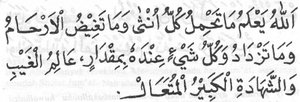 اَللّٰهُ يَعْلَمُ مَا تَحْمِلُ كُلُّ اُنْثٰى وَمَا تَغِيْضُ الْاَرْحَامُ
وَمَا تَزْدَادُ وَكُلُّ شَيْءٍ عِنْدَهُ بِمِقْدَارٍ، عَالِمُ الْغَيْبِ
وَالشَّهَادَةِ الْكَبِيْرُ الْمُتَعَالُ